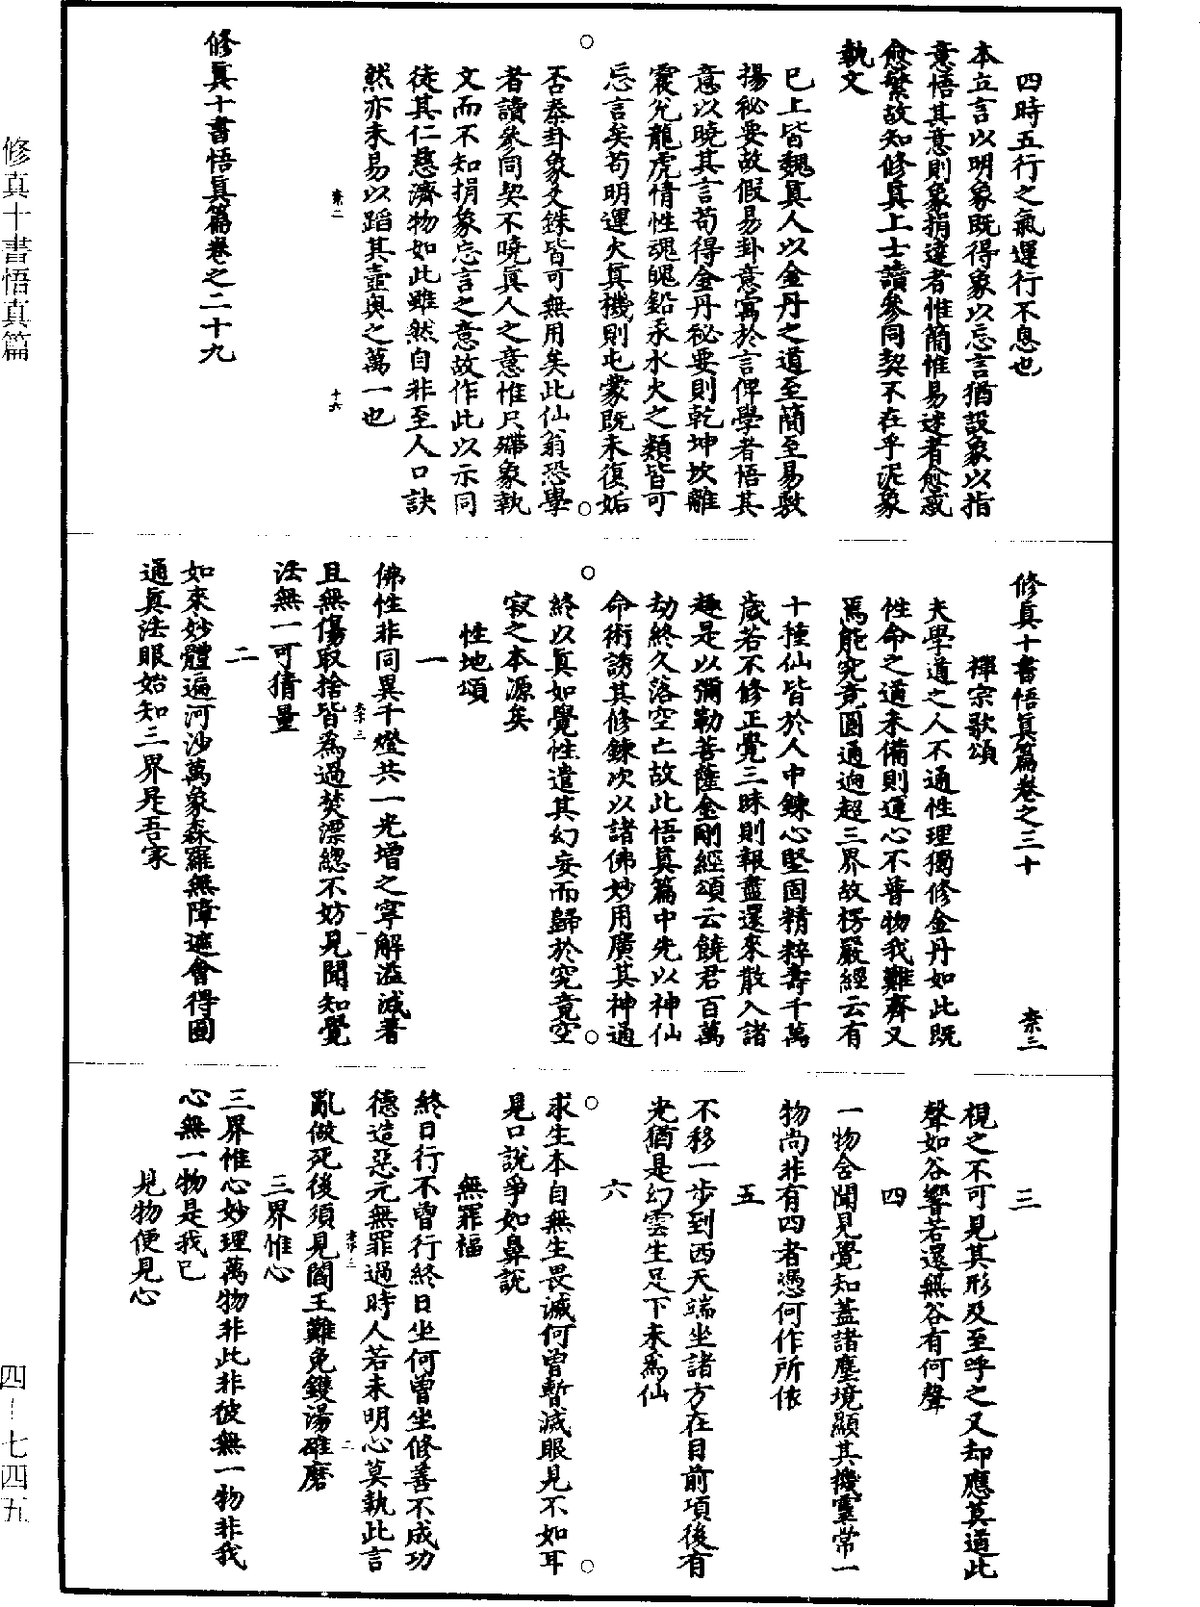 四時五行之氣運行不息也
本立言以明象既得象以忘言猶設象以指
意悟其意則象捐達者惟簡惟易迷者愈惑
愈繁故知修真上士讀參同契不在乎泥象
執文
已上皆魏真人以金丹之道至簡至易敷
揚秘要故假易卦意寓於言俾學者悟其
意以曉其言苟得金丹秘要則乾坤坎離
震兌龍虎情性魂魄鉛汞水火之類皆可
忘言矣苟明運火真機則屯蒙既未復姤
否泰卦象爻銖皆可無用矣此仙翁恐學
者讀參同契不曉真人之意惟只殢象執
文而不知捐象忘言之意故作此以示同
徒其仁慈濟物如此雖然自非至人口訣
然亦未易以蹈其壺奥之萬一也
柰二 十六
修真十書悟真篇卷之二十九
修真十書悟真篇卷之三十 柰三
禪宗歌頌
夫學道之人不通性理獨修金丹如此既
性命之道未備則運心不普物我難齊又
焉能究竟圓通迥超三界故楞嚴經云有
十種仙皆於人中鍊心堅固精粹壽千萬
歲若不修正覺三昧則報盡還來散入諸
趣是以彌勒菩薩金剛經頌云饒君百萬
劫終久落空亡故此悟真篇中先以神仙
命術誘其修鍊次以諸佛妙用廣其神通
終以真如覺性遣其幻妄而歸於究竟空
寂之本源矣
性地頌
一
佛性非同異千燈共一光增之寧解溢減著
柰三 一
且無傷取捨皆為過焚漂總不妨見聞知覺
法無一可猜量
二
如來妙體遍河沙萬象森羅無障遮會得圓
通真法眼始知三界是吾家
三
視之不可見其形及至呼之又却應莫道此
聲如谷響若還無谷有何聲
四
一物含聞見覺知蓋諸塵境顯其機靈常一
物尚非有四者憑何作所依
五
不移一步到西天端坐諸方在目前項後有
光猶是幻雲生足下未為仙
六
求生本自無生畏滅何曾暫滅眼見不如耳
見口說爭如鼻說
無罪福
終日行不曾行終日坐何曾坐修善不成功
德造惡元無罪過時人若未明心莫執此言
柰三 二
亂做死後須見閻王難免鑊湯碓磨
三界惟心
三界惟心妙理萬物非此非彼無一物非我
心無一物是我己
見物便見心
修真十書悟真篇
四—七四五